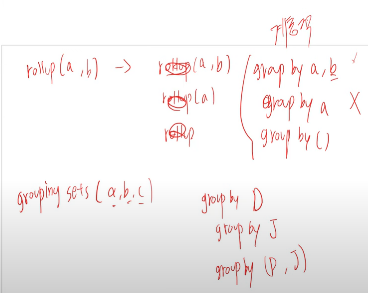 계층적
rollup(a,b) -> rollup(a,b) group by a, b
rollup(a) group by a X
rollup group by ()
grouping sets (a,b,c) group by D
group by J
group by (D, J)